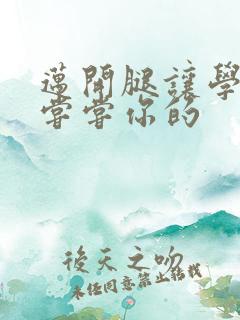 邁開腿讓學
嘗嘗你的
後天之吻
未經同意禁止轉載